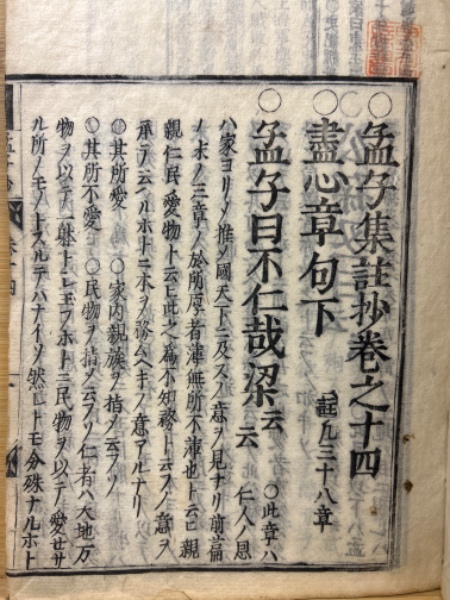 ○孟子集註抄卷之十四
○盡心章句下 註凡三十八章
○孟子曰不仁哉梁云云 ○此章ハ仁人ノ恩
ハ家ヨリソ推メ國天下ニ及スノ意ヲ見ナリ前篇
ノ末ノ三章ノ於所厚者薄無所不薄也ト云ヒ親
親仁民愛物ト云ヒ此之爲不知務ト云フノ意ヲ
承テ云ヘルホトニ本ヲ務ムヘキノ意アルナリ
○其所愛 ○家内親族ヲ指メ云フソ
○其所不愛 ○民物ヲ指メ云フソ仁者ハ天地万
物ヲ以テ一躰トシ玉フホトニ民物ヲ以テ愛セサ
ル所ノモノトスルテハナイソ然レトモ分殊ナルホト